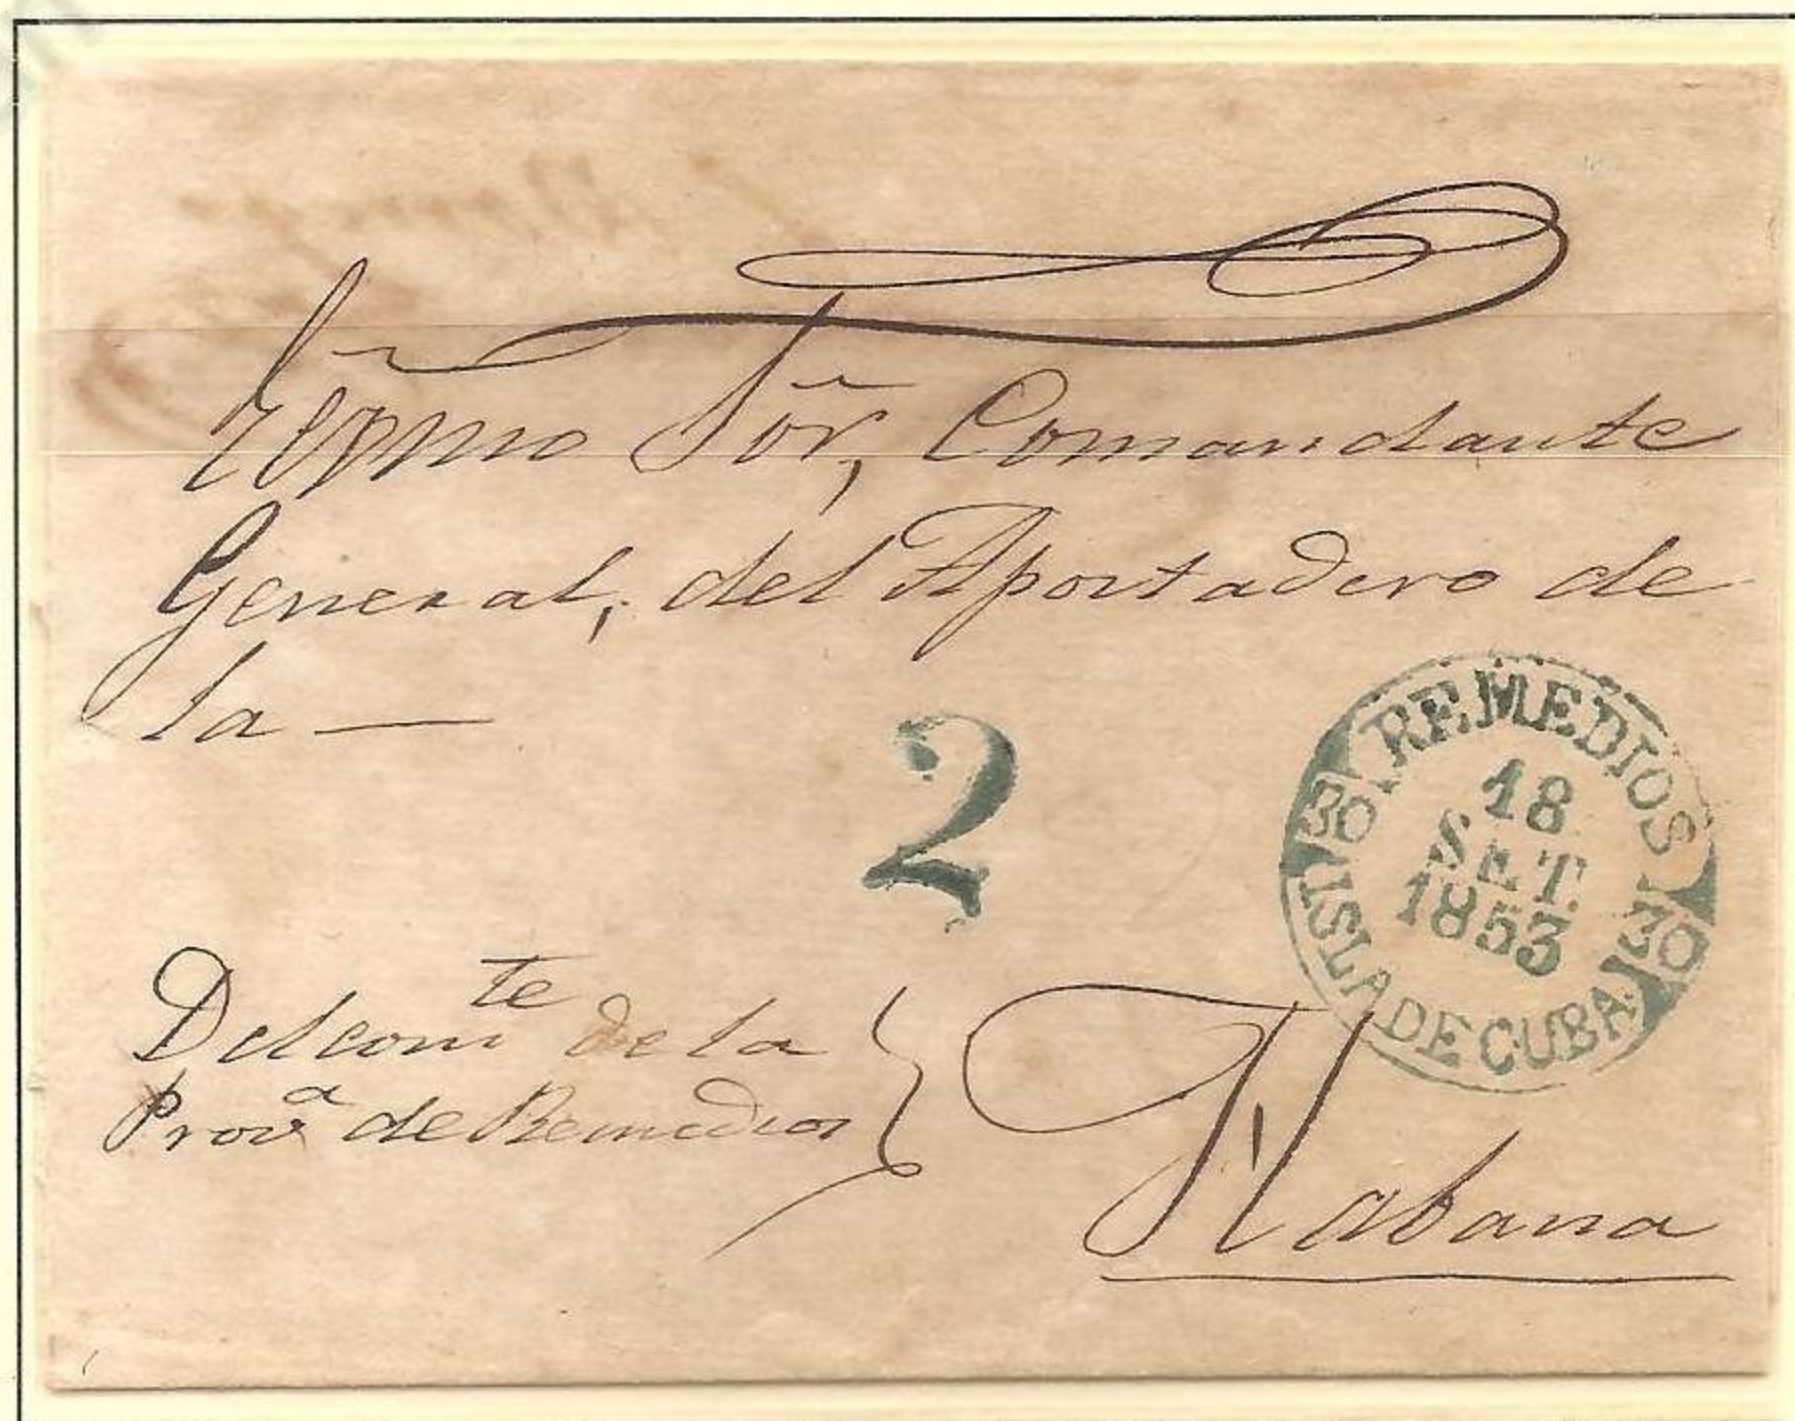 Exc̃mo Sõr, Comandante
General, del Apostadero de
la —
2
REMEDIOS
30 30
18
SET.
1853
ISLA DE CUBA
Delcom te de la
Prov a de Remedios
Habana